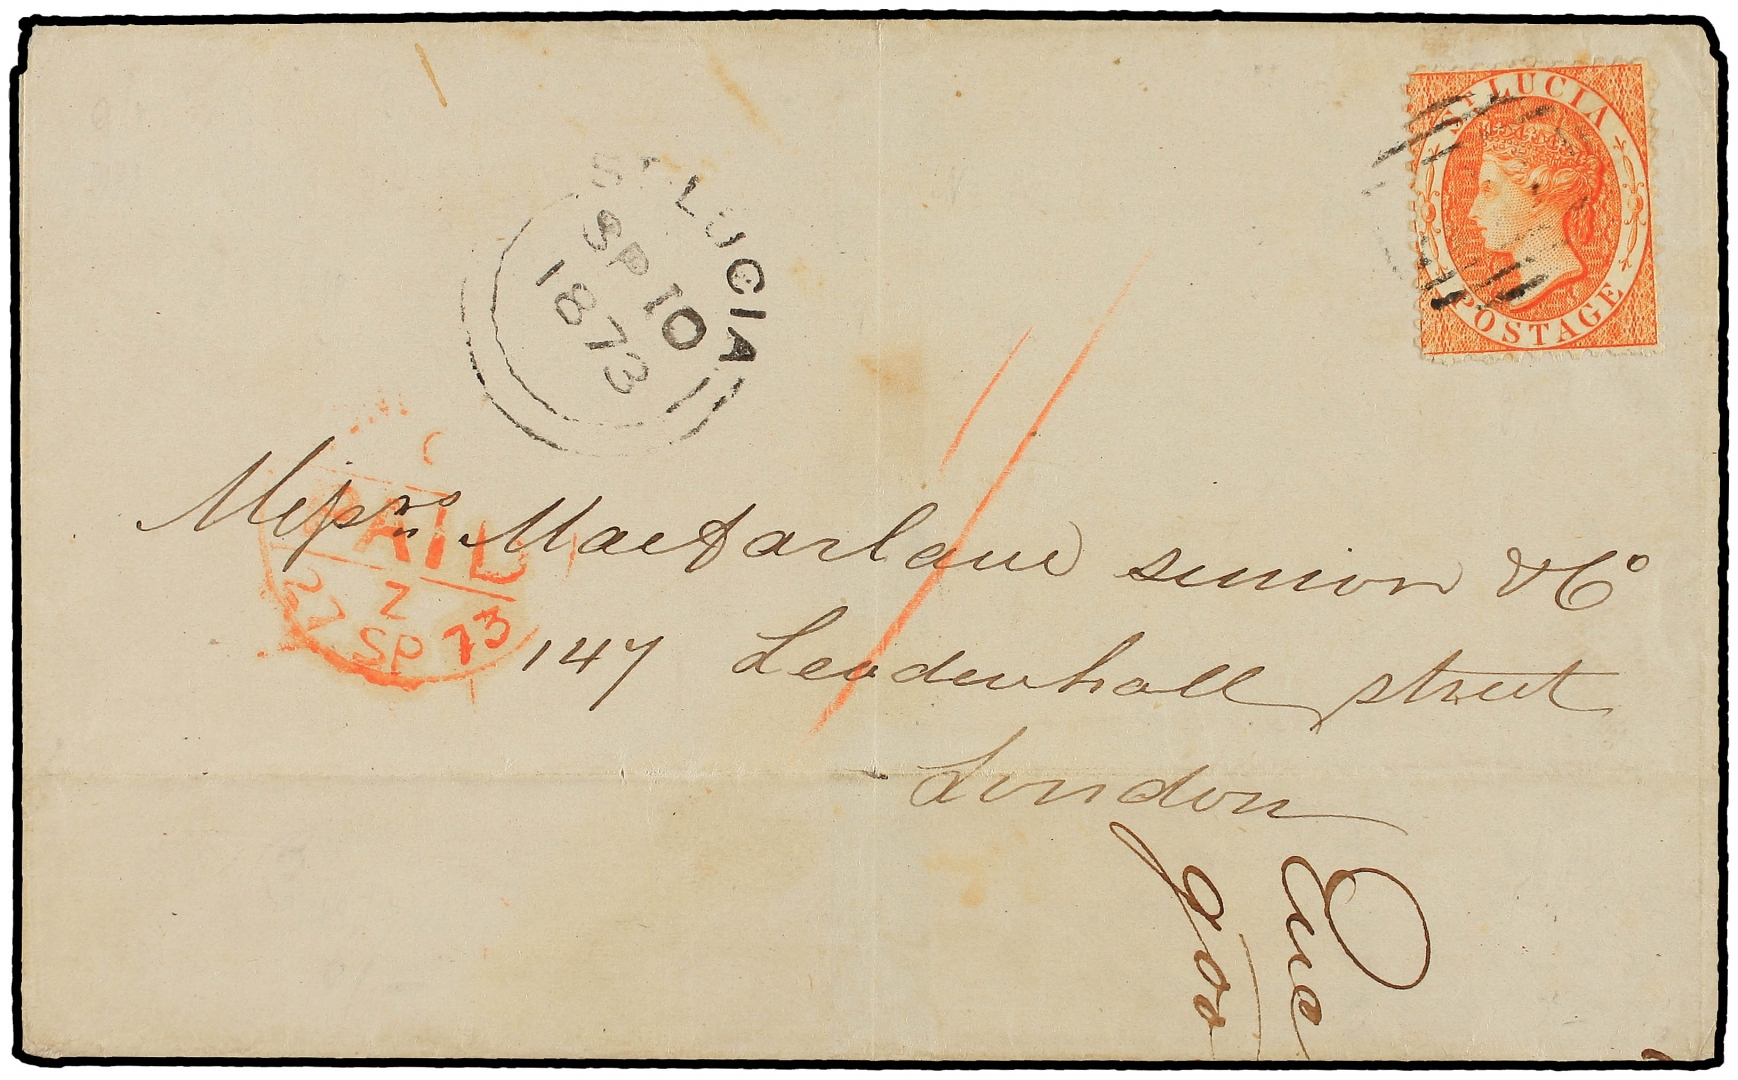 ST LUCIA
POSTAGE
ST LUCIA
SP 10
1873
PAID
Z
27 SP 73
Messrs Macfarlane senior & Co
147 Leadenhall street
London